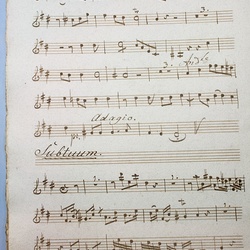 3.
3.
Adagio.
Subtuum.